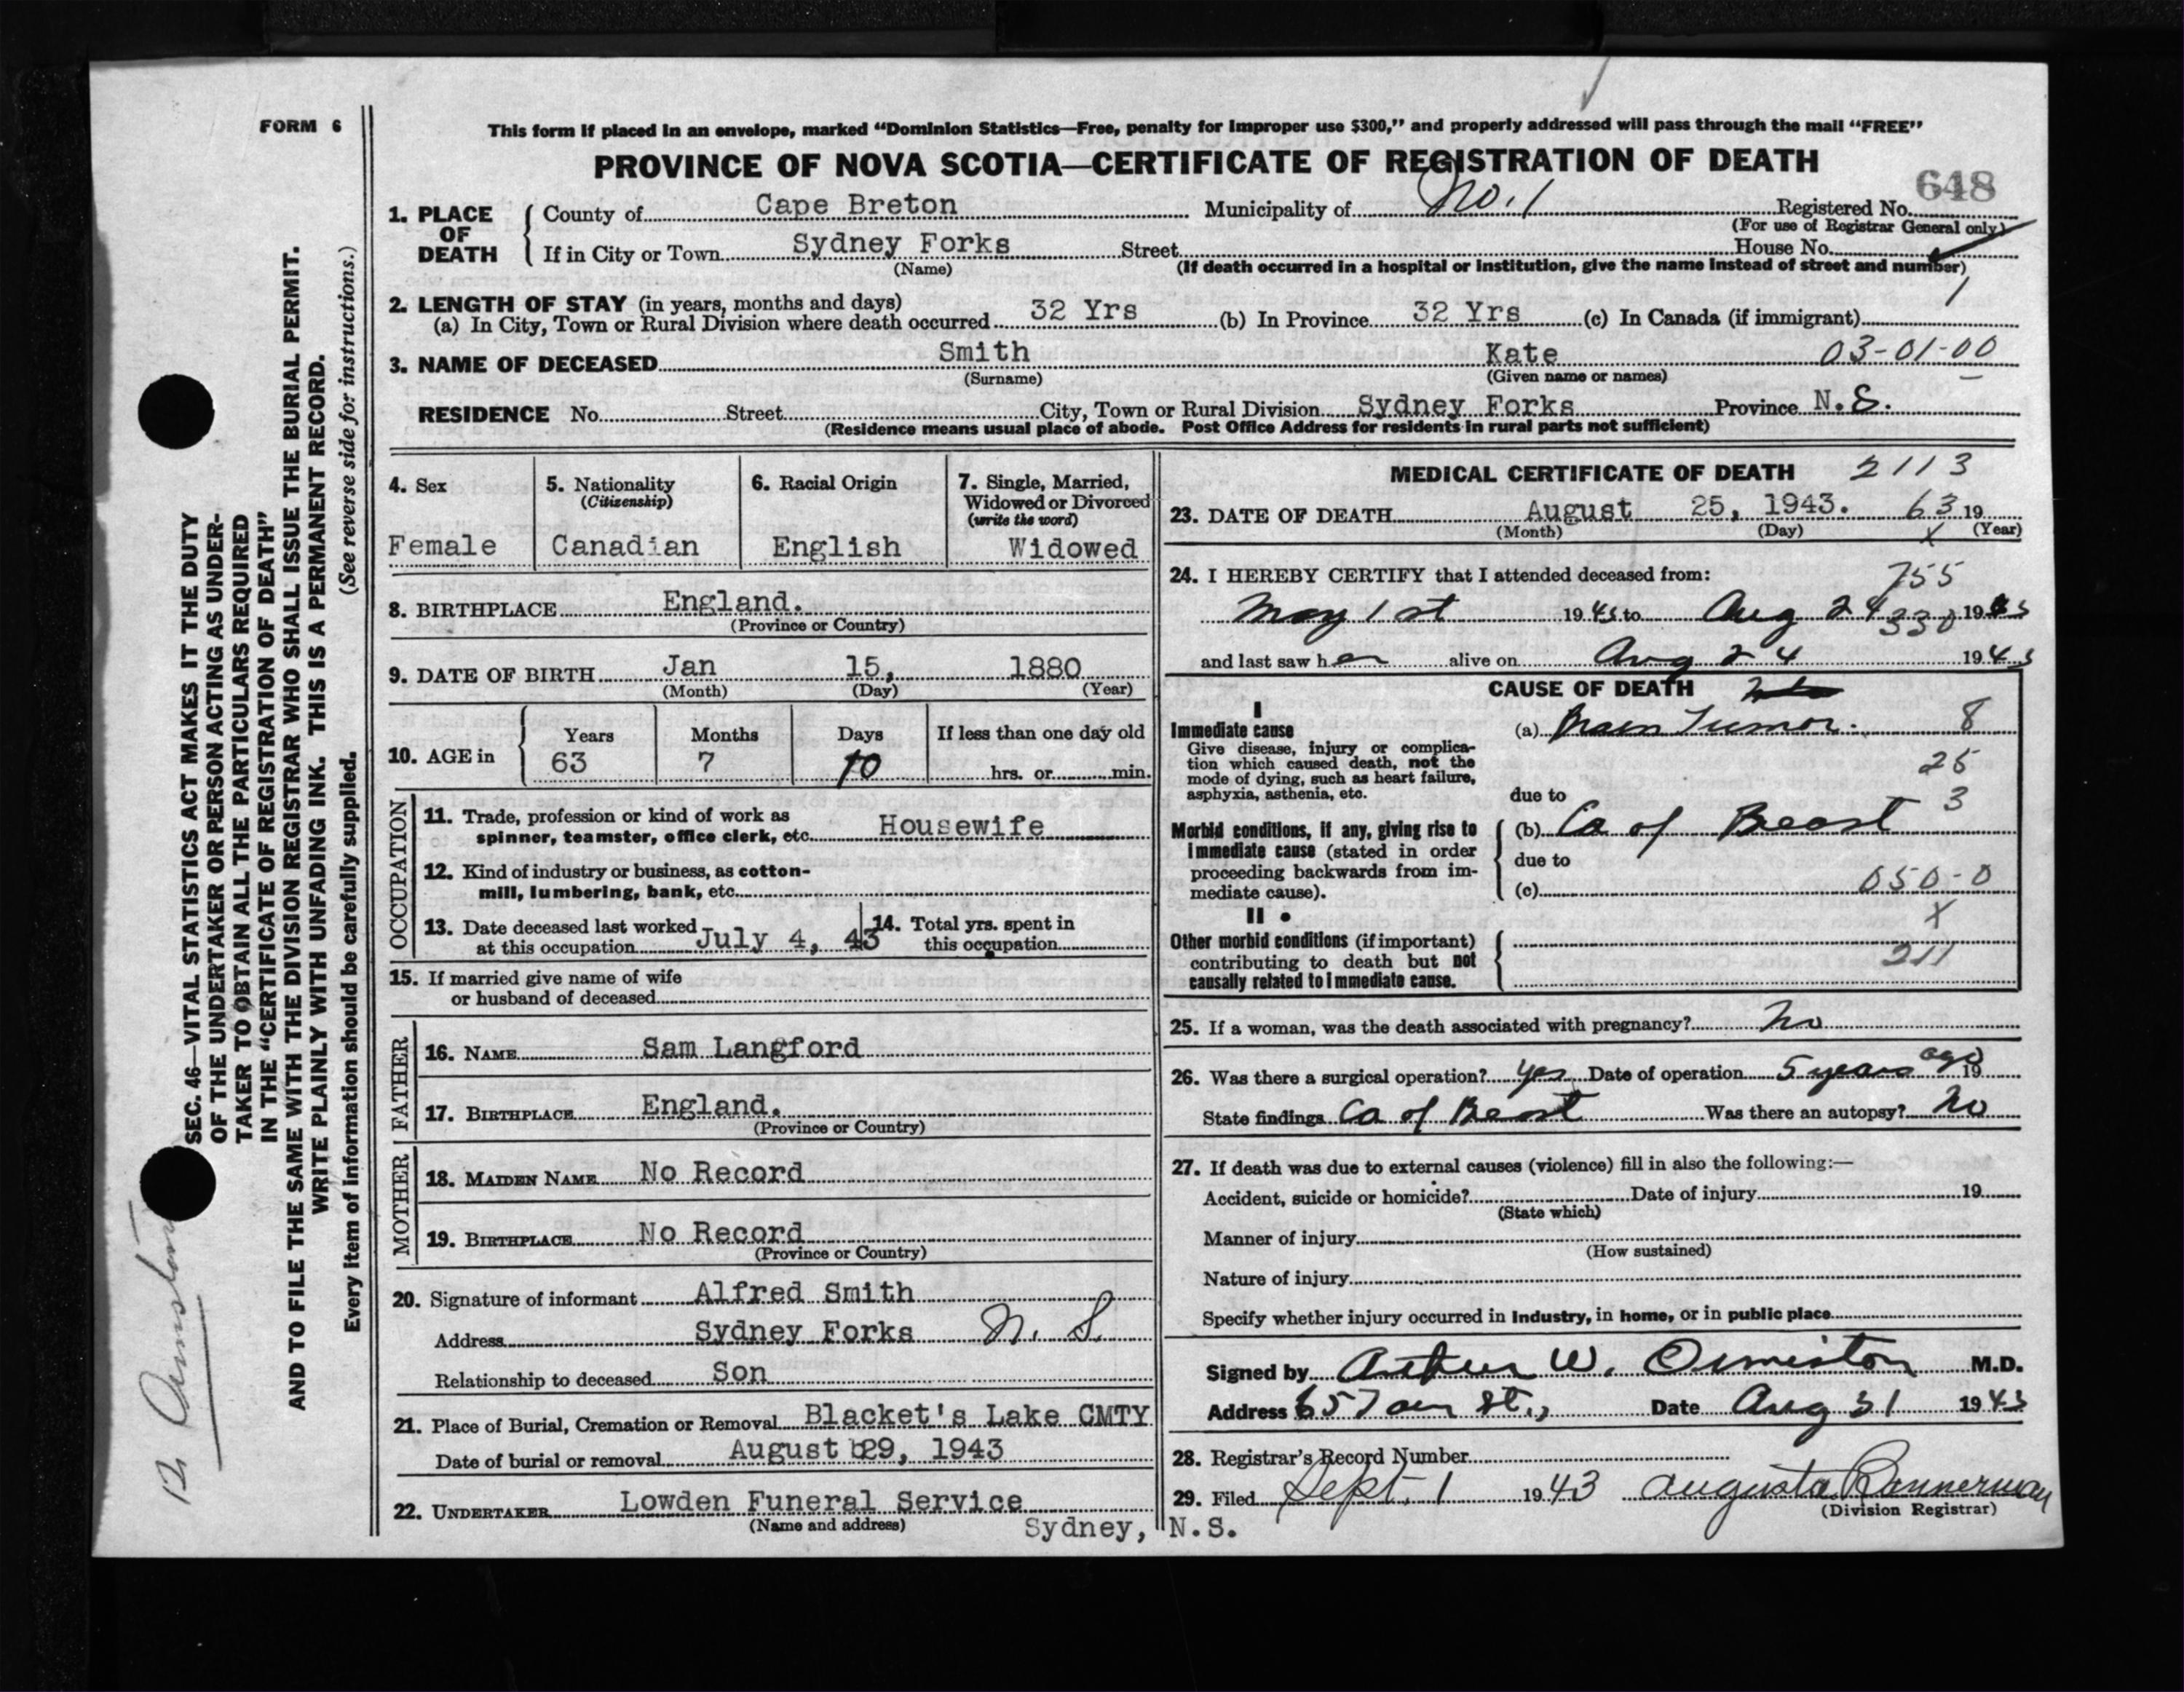 FORM 6
This form if placed in an envelope, marked “Dominion Statistics—Free, penalty for improper use $300,” and properly addressed will pass through the mail “FREE”
PROVINCE OF NOVA SCOTIA—CERTIFICATE OF REGISTRATION OF DEATH
648
1. PLACE OF DEATH
County of Cape Breton Municipality of No. 1 Registered No.
(For use of Registrar General only)
If in City or Town Sydney Forks Street House No.
(Name) (If death occurred in a hospital or institution, give the name instead of street and number)
1
2. LENGTH OF STAY (in years, months and days)
(a) In City, Town or Rural Division where death occurred 32 Yrs (b) In Province 32 Yrs (c) In Canada (if immigrant)
3. NAME OF DECEASED Smith Kate 03-01-00
(Surname) (Given name or names)
RESIDENCE No. Street City, Town or Rural Division Sydney Forks Province N.S.
(Residence means usual place of abode. Post Office Address for residents in rural parts not sufficient)
4. Sex
Female
5. Nationality
(Citizenship)
Canadian
6. Racial Origin
English
7. Single, Married,
Widowed or Divorced
(write the word)
Widowed
8. BIRTHPLACE England.
(Province or Country)
9. DATE OF BIRTH Jan 15, 1880
(Month) (Day) (Year)
10. AGE in
Years Months Days If less than one day old
63 7 10 hrs. or min.
OCCUPATION
11. Trade, profession or kind of work as
spinner, teamster, office clerk, etc. Housewife
12. Kind of industry or business, as cotton-
mill, lumbering, bank, etc.
13. Date deceased last worked
at this occupation July 4, 43
14. Total yrs. spent in
this occupation
15. If married give name of wife
or husband of deceased
FATHER
16. NAME Sam Langford
17. BIRTHPLACE England.
(Province or Country)
MOTHER
18. MAIDEN NAME No Record
19. BIRTHPLACE No Record
(Province or Country)
20. Signature of informant Alfred Smith
Address Sydney Forks N. S
Relationship to deceased Son
21. Place of Burial, Cremation or Removal Blacket's Lake CMTY
Date of burial or removal August 29, 1943
22. UNDERTAKER Lowden Funeral Service
(Name and address) Sydney, N.S.
MEDICAL CERTIFICATE OF DEATH 2113
23. DATE OF DEATH August 25, 1943. 63 19
(Month) (Day) (Year)
X
24. I HEREBY CERTIFY that I attended deceased from:
755
May 1st 1943 to Aug 24 1943
330
and last saw her alive on Aug 24 1943
CAUSE OF DEATH
I
Immediate cause
Give disease, injury or complica-
tion which caused death, not the
mode of dying, such as heart failure,
asphyxia, asthenia, etc.
(a) Brain Tumor. 8
25
due to 3
Morbid conditions, if any, giving rise to
immediate cause (stated in order
proceeding backwards from im-
mediate cause).
(b) Ca of Breast
due to
(c) 050-0
X
II
Other morbid conditions (if important)
contributing to death but not
causally related to immediate cause.
211
25. If a woman, was the death associated with pregnancy? No
26. Was there a surgical operation? yes Date of operation 5 years ago 19
State findings Ca of Breast Was there an autopsy? No
27. If death was due to external causes (violence) fill in also the following:—
Accident, suicide or homicide? Date of injury 19
(State which)
Manner of injury
(How sustained)
Nature of injury
Specify whether injury occurred in industry, in home, or in public place
Signed by Arthur W. Ormiston M.D.
Address St., Date Aug 31 1943
28. Registrar's Record Number
29. Filed Sept. 1 1943 Augusta Bannerman
(Division Registrar)
SEC. 46—VITAL STATISTICS ACT MAKES IT THE DUTY
OF THE UNDERTAKER OR PERSON ACTING AS UNDER-
TAKER TO OBTAIN ALL THE PARTICULARS REQUIRED
IN THE “CERTIFICATE OF REGISTRATION OF DEATH”
AND TO FILE THE SAME WITH THE DIVISION REGISTRAR WHO SHALL ISSUE THE BURIAL PERMIT.
WRITE PLAINLY WITH UNFADING INK. THIS IS A PERMANENT RECORD.
Every item of information should be carefully supplied. (See reverse side for instructions.)